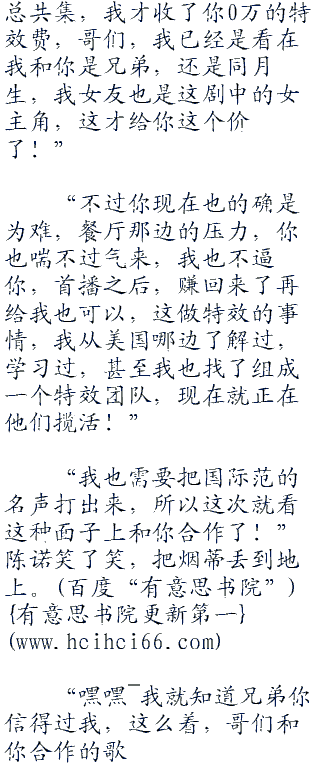 总共集，我才收了你0万的特
效费，哥们，我已经是看在
我和你是兄弟，还是同月
生，我女友也是这剧中的女
主角，这才给你这个价
了！”
“不过你现在也的确是
为难，餐厅那边的压力，你
也喘不过气来，我也不逼
你，首播之后，赚回来了再
给我也可以，这做特效的事
情，我从美国哪边了解过，
学习过，甚至我也找了组成
一个特效团队，现在就正在
他们揽活！”
“我也需要把国际范的
名声打出来，所以这次就看
这种面子上和你合作了！”
陈诺笑了笑，把烟蒂丢到地
上。(百度“有意思书院”)
{有意思书院更新第一}
(www.hcihci66.com)
“嘿嘿¯我就知道兄弟你
信得过我，这么着，哥们和
你合作的歌